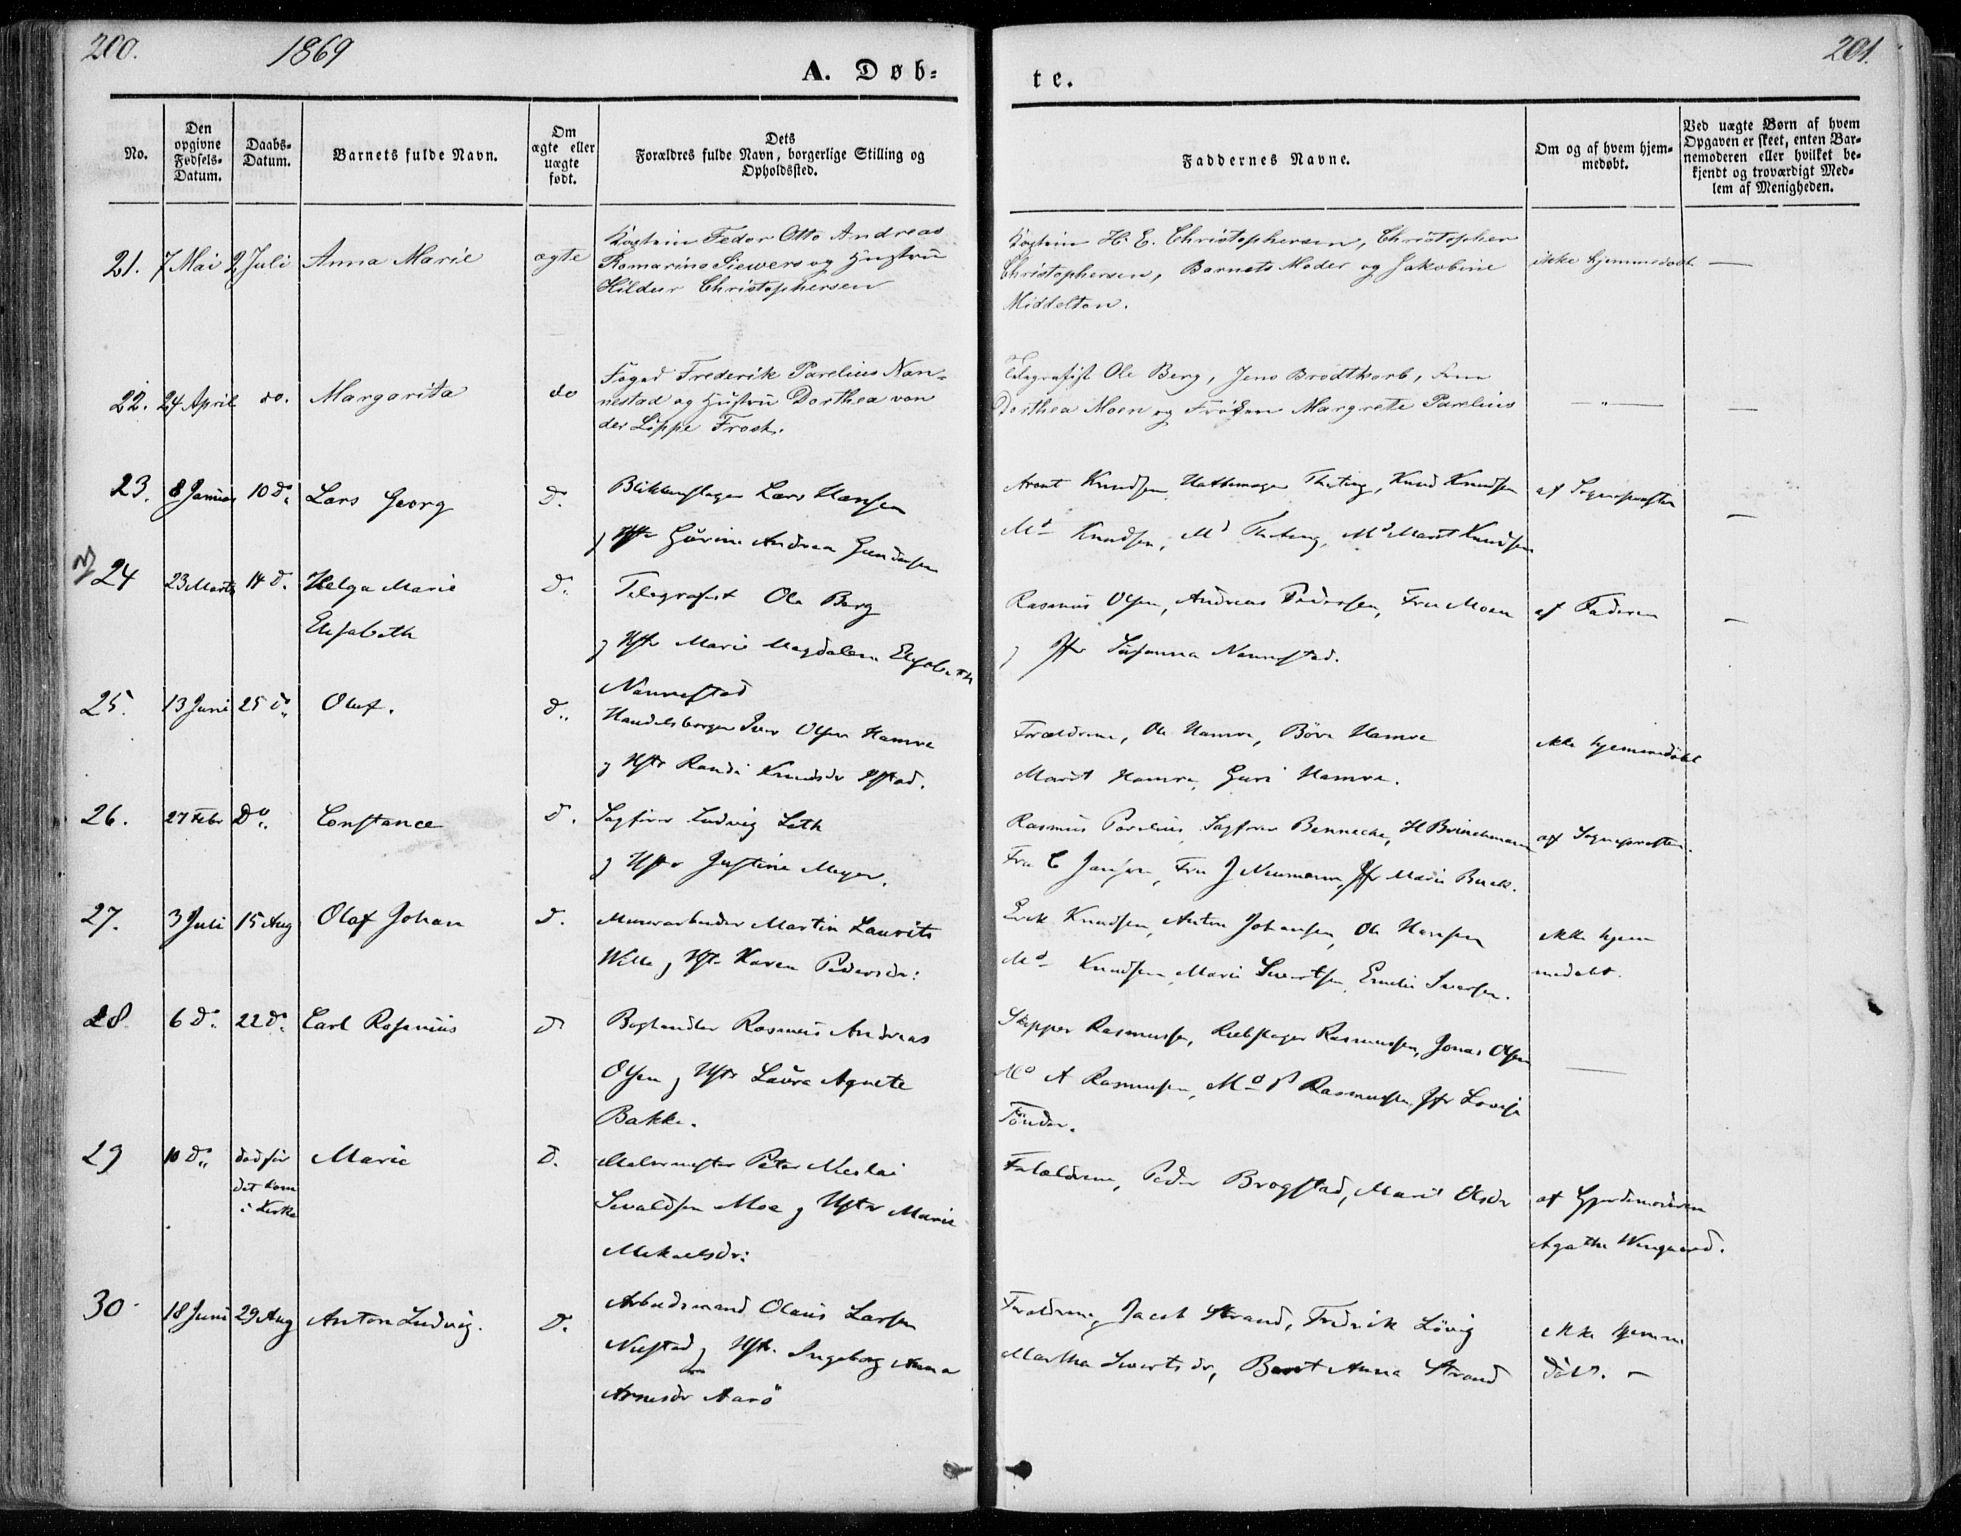 200.
1869
A. Døb=
te.
201.
No.
Den opgivne Fødsels-Datum.
Daabs-Datum.
Barnets fulde Navn.
Om ægte eller uægte født.
Dets Forældres fulde Navn, borgerlige Stilling og Opholdssted.
Faddernes Navne.
Om og af hvem hjemmedøbt.
Ved uægte Børn af hvem Opgaven er skeet, enten Barnemoderen eller hvilket bekjendt og troværdigt Medlem af Menigheden.
21. 7 Mai 2 Juli Anna Marie ægte
Kaptein Fedor Otto Andreas
Romarino Siewers og Hustru
Hildur Christophersen
Kaptein H. E. Christophersen, Christopher
Christophersen, Barnets Moder og Jakobine
Middelton.
ikke hjemmedøbt. —
22. 24 April do. Margarita do
Foged Frederik Parelius Nan=
nestad og Hustru Dorthea von
der Lippe Frost.
Telegrafist Ole Berg, Jens Brodtkorb, Frue
Dorthea Moen og Frøken Margrete Parelius
— " —
—
23. 8 Januar 10 d. Lars Georg d.
Blikkenslager Lars Hansen
og Hstr Gurine Andrea Gundersen
Arent Knudsen, Hattemager Theting, Knud Knudsen
Md Knudsen, Md Theting, Md Marit Knudsen
af Sognepresten
—
24 23 Marts 14 d. Helga Marie
Elisabeth
d.
Telegrafist Ole Berg
og Hstr Marie Magdalena Elisabeth
Nannestad
Rasmus Olsen, Andreas Pedersen, Fru Moen
og Jfr Susanna Nannestad.
af Faderen
—
25. 13 Juni 25 d. Oluf. d.
Handelsborger Iver Olsen Hamre
og Hstr Randi Knudsdr
Forældrene, Ole Hamre, Hamre
Marit Hamre, Guri Hamre.
ikke hjemmedøbt
26. 27 Febr Do. Constance d.
Sagfører Ludvig Leth
og Hstr Justine Meyer.
Rasmus Parelius, Sagfører Bennecke, H Brinchmann
Fru C Jansen, Fru J Neumann, Jfr Marie Buck.
af Sognepresten.
27. 3 Juli 15 Aug Olaf Johan d.
Murarbeider Martin Laurits
Wille og Hstr Karen Pedersdr:
Erik Knudsen, Anton Johansen, Ole Hansen
Md Knudsen, Marie Sivertsen, Emilie Iversen.
ikke hjem
medøbt.
28. 6 d. 22 d. Carl Rasmus d
Boghandler Rasmus Andreas
Olsen og Hstr Laura Agnete
Bakke.
Skipper Rasmussen, Rebslager Rasmussen, Jonas Olsen
Md A Rasmussen, Md P Rasmussen, Jfr Lovise
Tønder.
—
29 10 d. død før
det kom
i Kirke
Marie d.
Malermester Peter Nicolai
Sivaldsen Moe og Hstr Marie
Mikaelsdr:
Forældrene, Peder Brogstad, Marit Olsdr
af Gjordemoderen
Agathe Wengaard.
30 18 Juni 29 Aug Anton Ludvig. d.
Arbeidsmand Olaus Larsen
Nustad og Hstr. Ingeborg Anna
Arnesdr Aarø
Forældrene, Jacob Strand, Fredrik Løvig
Martha Sivertsdr, Berit Anna Strand
ikke hjemme
døbt. —